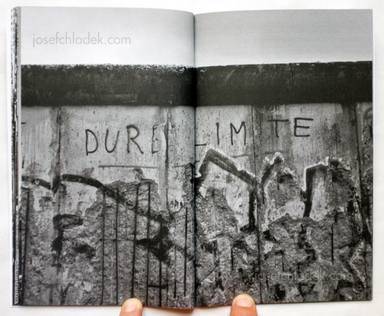 josefchladek.com
DURE LIMITE